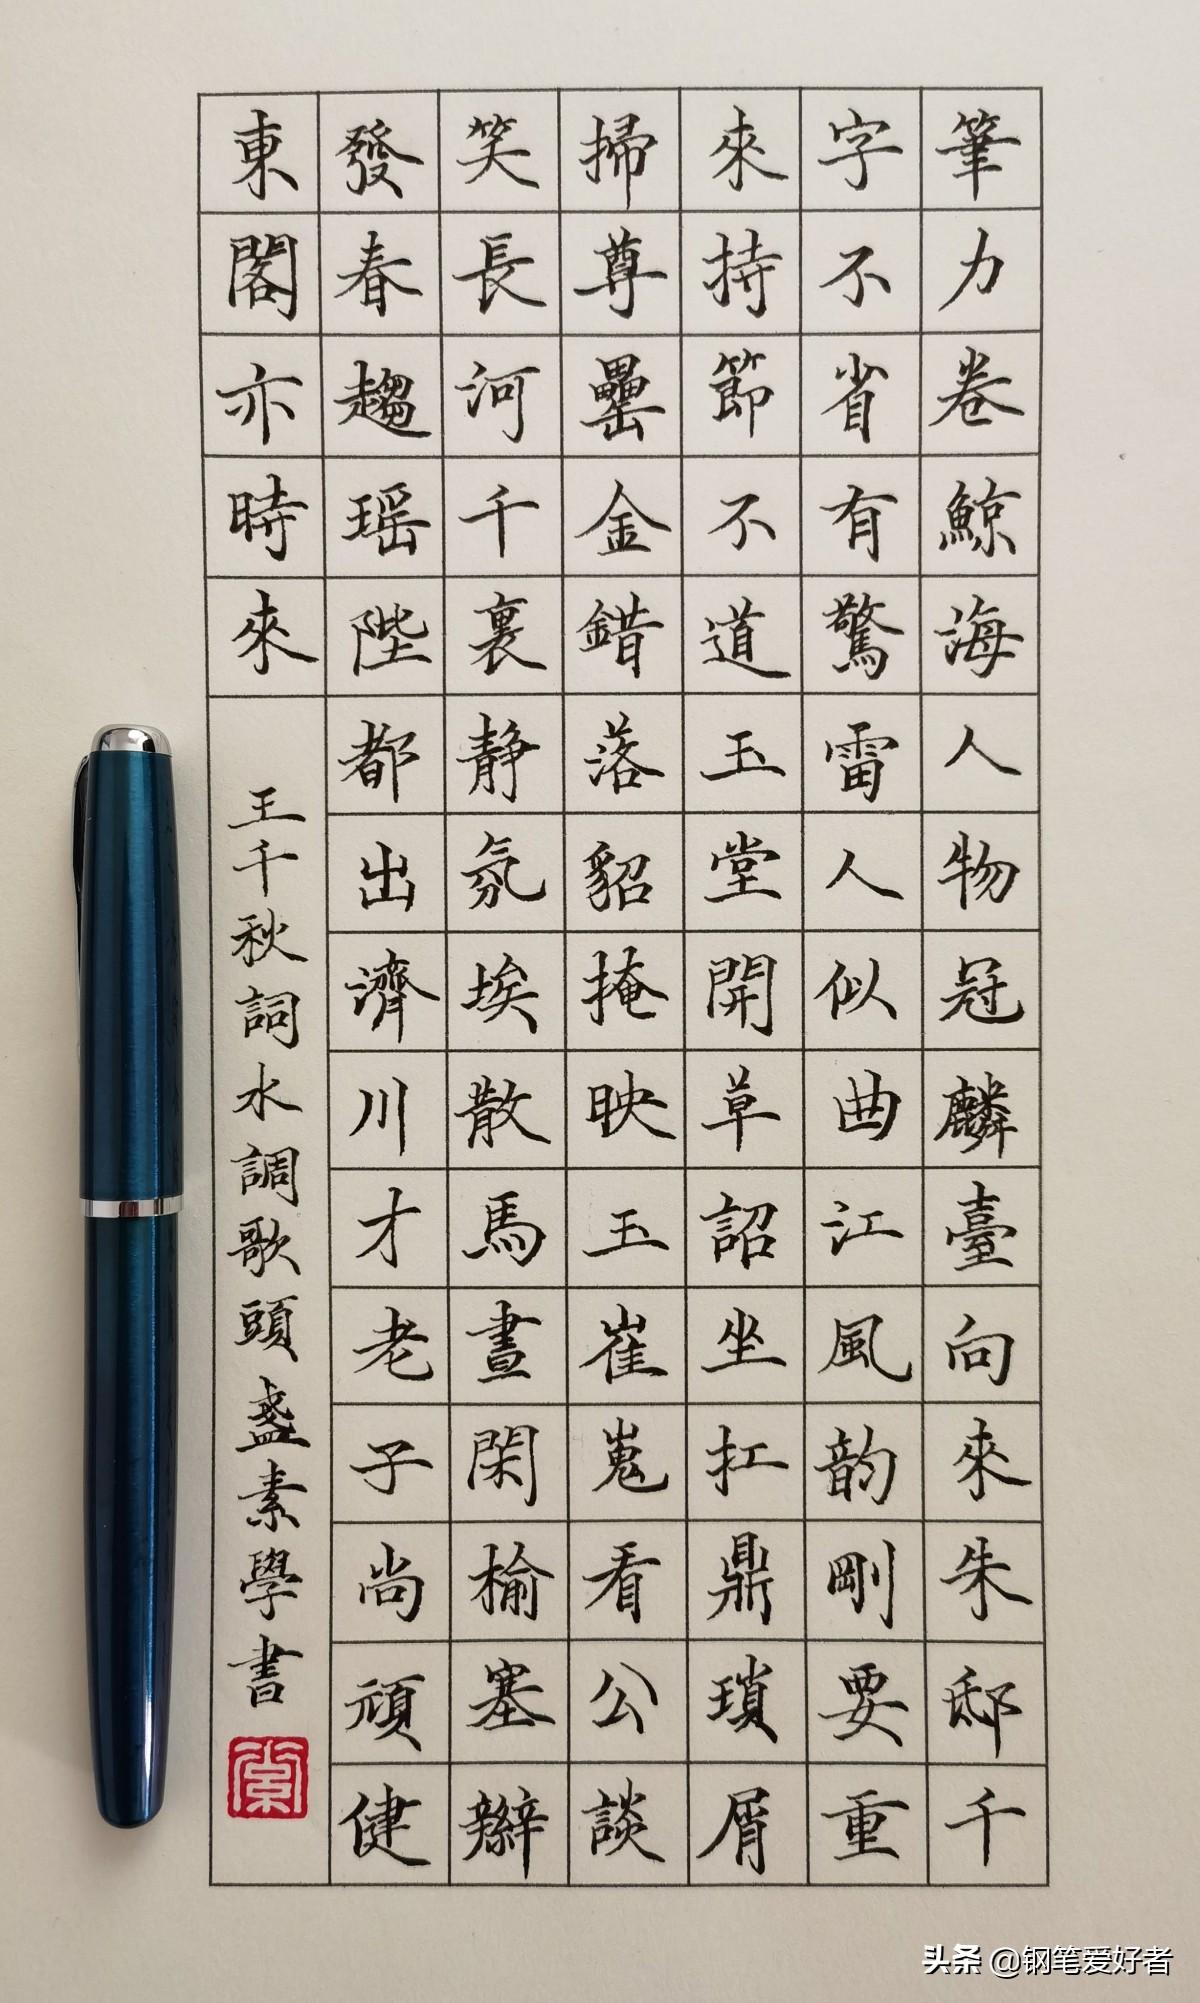 筆力卷鯨海人物冠麟臺向來朱邸千
字不省有驚雷人似曲江風韵剛要重
來持節不道玉堂開草詔坐扛鼎瑣屑
掃尊罍金錯落貂掩映玉崔嵬看公談
笑長河千裏静氛埃散馬晝閑榆塞辮
發春趨瑶陛都出濟川才老子尚頑健
東閣亦時來
王千秋詞水調歌頭盞素學書
头条 @钢笔爱好者